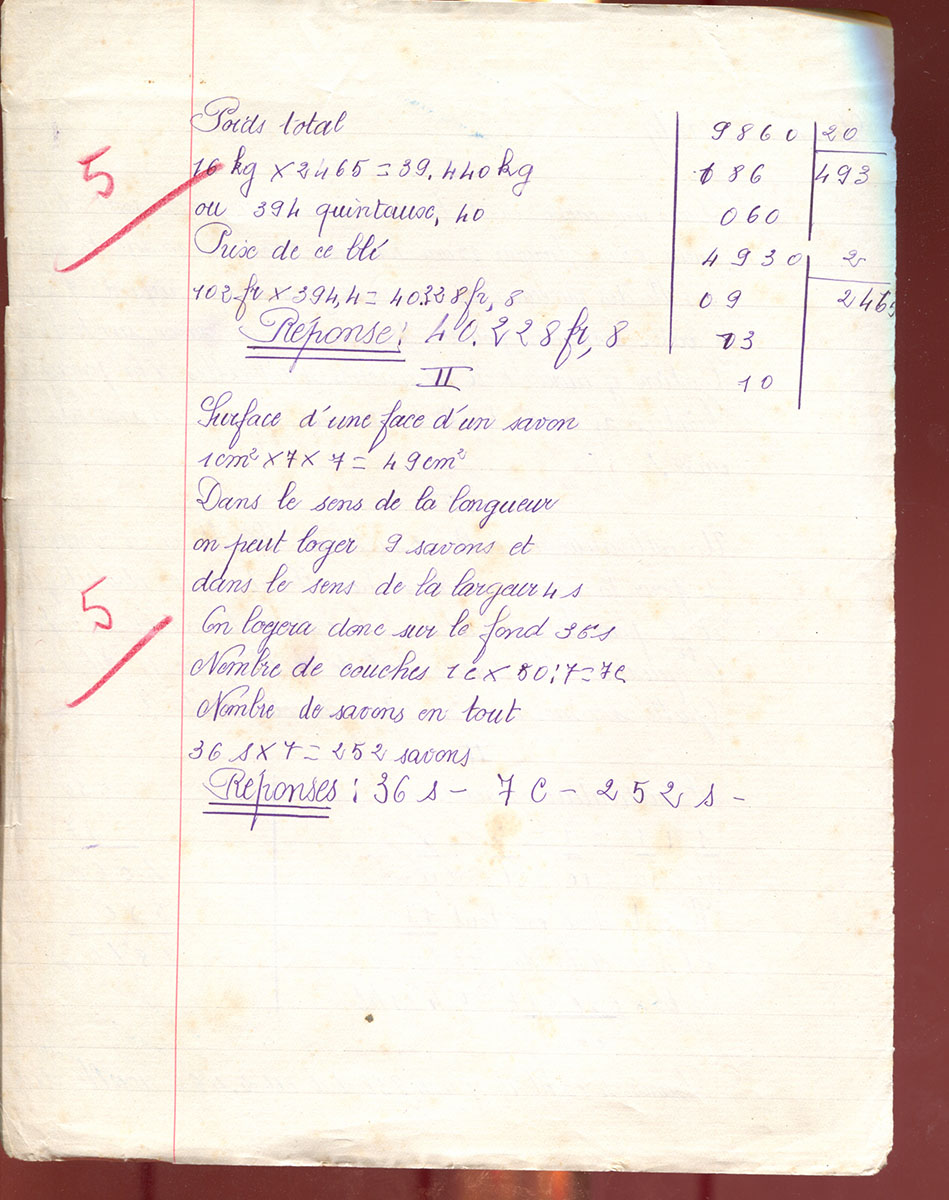 Poids total
16 kg × 2465 = 39.440 kg
ou 394 quintaux, 40
Prix de ce blé
102 fr × 394,4 = 40.228 fr, 8
Réponse : 40.228 fr, 8
9860 20
186 493
060
4930 2
09 2465
13
10
II
Surface d'une face d'un savon
1cm² × 7 × 7 = 49 cm²
Dans le sens de la longueur
on peut loger 9 savons et
dans le sens de la largeur 4 s
On logera donc sur le fond 36 s
Nombre de couches 1c × 50 : 7 = 7c
Nombre de savons en tout
36 s × 7 = 252 savons
Réponses : 36 s – 7 C – 252 s –
5
5